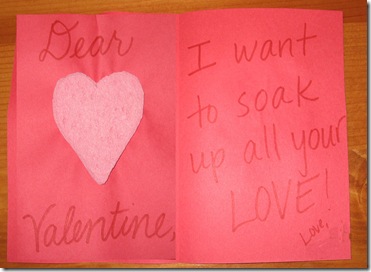 Dear
Valentine,
I want
to soak
up all your
LOVE!
Love,